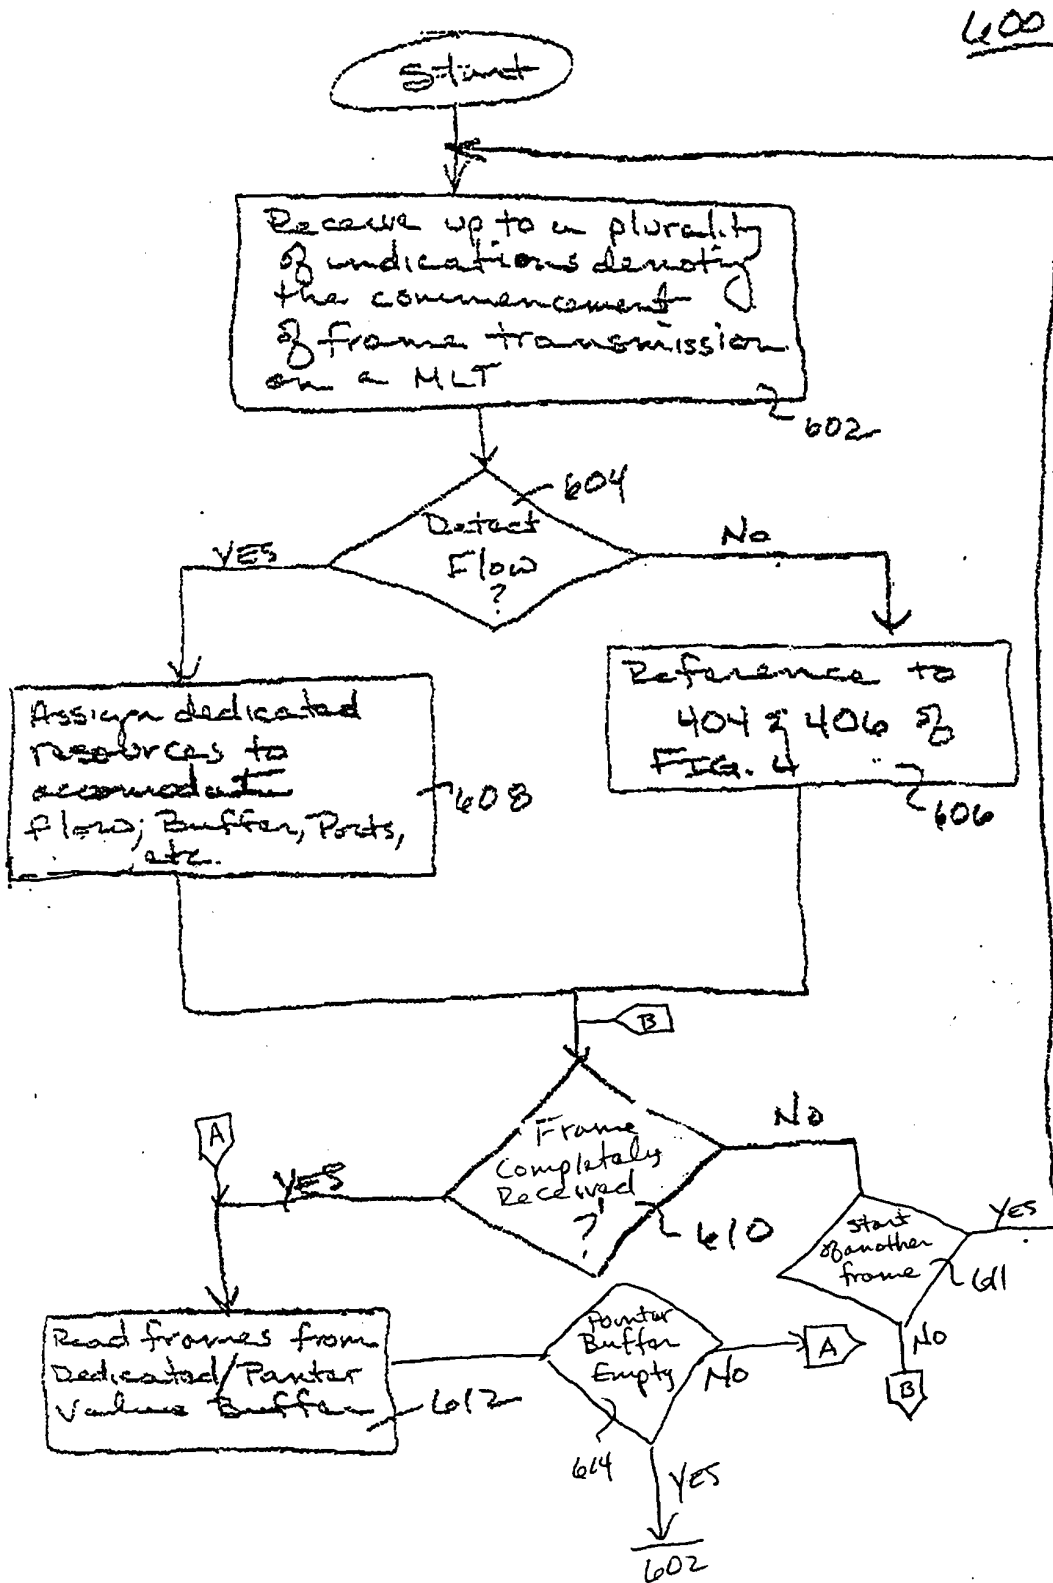 600
Start
Receive up to a plurality
of indications denoting
the commencement
of frame transmission
on a MLT
602
604
Detect
Flow
?
YES
No
Assign dedicated
resources to
accomodate
flow; Buffer, Ports,
etc.
608
Reference to
404 & 406 of
FIG. 4
606
B
A
YES
Frame
Completely
Received
?
610
No
Start
of another
frame
YES
611
NO
B
Read frames from
Dedicated/Pointer
Value Buffer
612
Pointer
Buffer
Empty
NO
A
614
YES
602